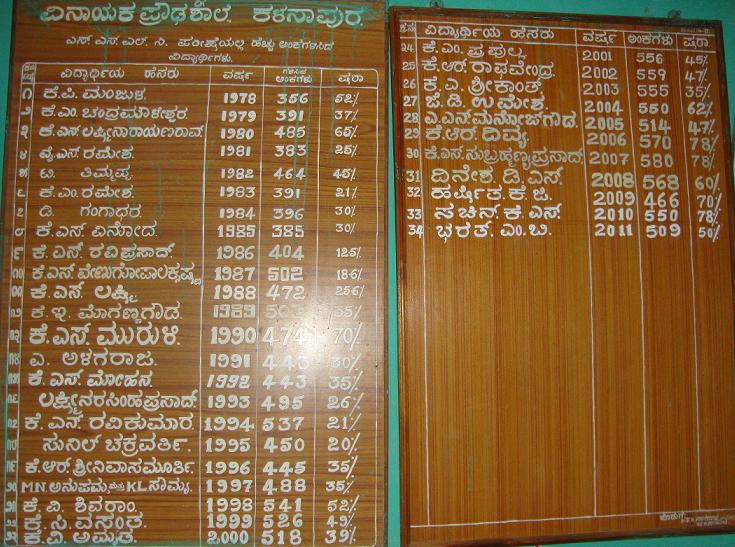 ವಿನಾಯಕ ಪ್ರೌಢಶಾಲೆ. ಕಳಸಾಪುರ.
ಎಸ್.ಎಸ್.ಎಲ್.ಸಿ. ಪರೀಕ್ಷೆಯಲ್ಲಿ ಹೆಚ್ಚು ಅಂಕಗಳಿಸಿದ
ವಿದ್ಯಾರ್ಥಿಗಳು.
ವಿದ್ಯಾರ್ಥಿಯ ಹೆಸರು ವರ್ಷ ಗಳಿಸಿದ ಅಂಕಗಳು ಷರಾ
೧ ಕೆ.ಪಿ. ಮಂಜುಳ. 1978 356 52%
೨ ಕೆ.ಎಂ. ಚಂದ್ರಮೌಳೇಶ್ವರ. 1979 391 37%
೩ ಕೆ.ಎಸ್ ಲಕ್ಷ್ಮೀನಾರಾಯಣರಾವ್. 1980 485 65%
೪ ವೈ.ಎಸ್. ರಮೇಶ. 1981 383 25%
೫ ಟಿ. ತಿಮ್ಮಪ್ಪ. 1982 464 45%
೬ ಕೆ.ಎಂ. ರಮೇಶ. 1983 391 21%
೭ ಡಿ. ಗಂಗಾಧರ. 1984 396 30%
೮ ಕೆ.ಎಸ್. ವಿನೋದ. 1985 385 30%
೯ ಕೆ. ಎಸ್. ರವಿಪ್ರಸಾದ್. 1986 404 12.5%
೧೦ ಕೆ.ಎಸ್. ವೇಣುಗೋಪಾಲಕೃಷ್ಣ 1987 502 18.6%
೧೧ ಕೆ. ಎಸ್. ಲಕ್ಷ್ಮಿ 1988 472 25.6%
೧೨ ಕೆ.ಇ. ಮೊಗಣ್ಣಗೌಡ. 1989
೧೩ ಕೆ.ಎಸ್. ಮುರುಳಿ. 1990 474 70%
೧೪ ಎ. ಅಳಗರಾಜ. 1991 443 30%
೧೫ ಕೆ. ಎಸ್. ಮೋಹನ. 1992 443 35%
೧೬ ಲಕ್ಷ್ಮೀನರಸಿಂಹಪ್ರಸಾದ್. 1993 495 26%
೧೭ ಕೆ. ಎಸ್. ರವಿಕುಮಾರ. 1994 537 21%
೧೮ ಸುನಿಲ್ ಚಕ್ರವರ್ತಿ. 1995 450 20%
೧೯ ಕೆ.ಆರ್ ಶ್ರೀನಿವಾಸಮೂರ್ತಿ. 1996 445 35%
೨೦ M.N. ಅನುಪಮ, ಮತ್ತು K.L ಸೌಮ್ಯ. 1997 488 35%
೨೧ ಕೆ. ವಿ. ಶಿವರಾಂ. 1998 541 52%
೨೨ ಕೆ. ಸಿ. ವಸಂತ. 1999 526 49%
೨೩ ಕೆ. ವಿ. ಅಮೃತ. 2000 518 39%
ವಿದ್ಯಾರ್ಥಿಯ ಹೆಸರು ವರ್ಷ ಅಂಕಗಳು ಷರಾ
24 ಕೆ.ಎಂ. ಪ್ರಫುಲ್ಲ. 2001 556 45%
25 ಕೆ.ಆರ್ ರಾಘವೇಂದ್ರ. 2002 559 47%
26 ಕೆ.ಎ. ಶ್ರೀಕಾಂತ. 2003 555 35%
27 ಬಿ.ಡಿ. ಉಮೇಶ. 2004 550 62%
28 ಎ.ಎಸ್ ಮನೋಜ್‌ಗೌಡ. 2005 514 47%
29 ಕೆ.ಆರ್. ದಿವ್ಯ. 2006 570 78%
30 ಕೆ.ಎಸ್. ಸುಬ್ರಹ್ಮಣ್ಯಪ್ರಸಾದ್. 2007 580 78%
31 ದಿನೇಶ. ಡಿ. ಎಸ್. 2008 568 60%
32 ಹರ್ಷಿತ. ಕೆ. ಜಿ. 2009 466 70%
33 ಸಚಿನ್. ಕೆ. ಎಸ್. 2010 550 78%
34 ಭರತ್. ಎಂ. ಬಿ. 2011 509 50%